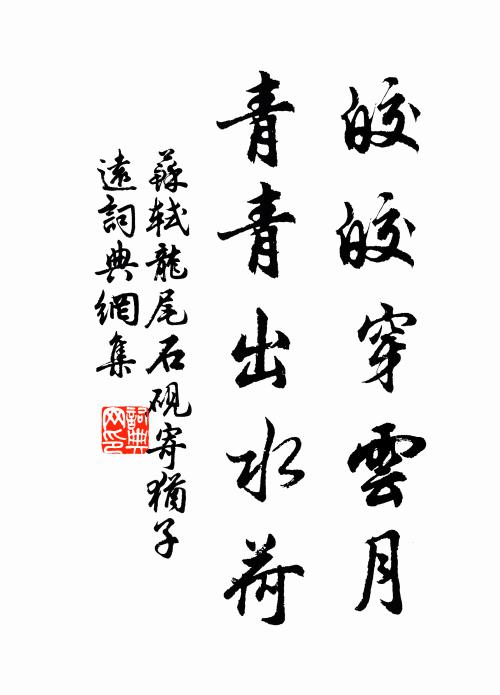 皎皎穿雲月
青青出水荷
蘇軾龍尾石硯寄猶子
遠詞典網集
詞典
网印